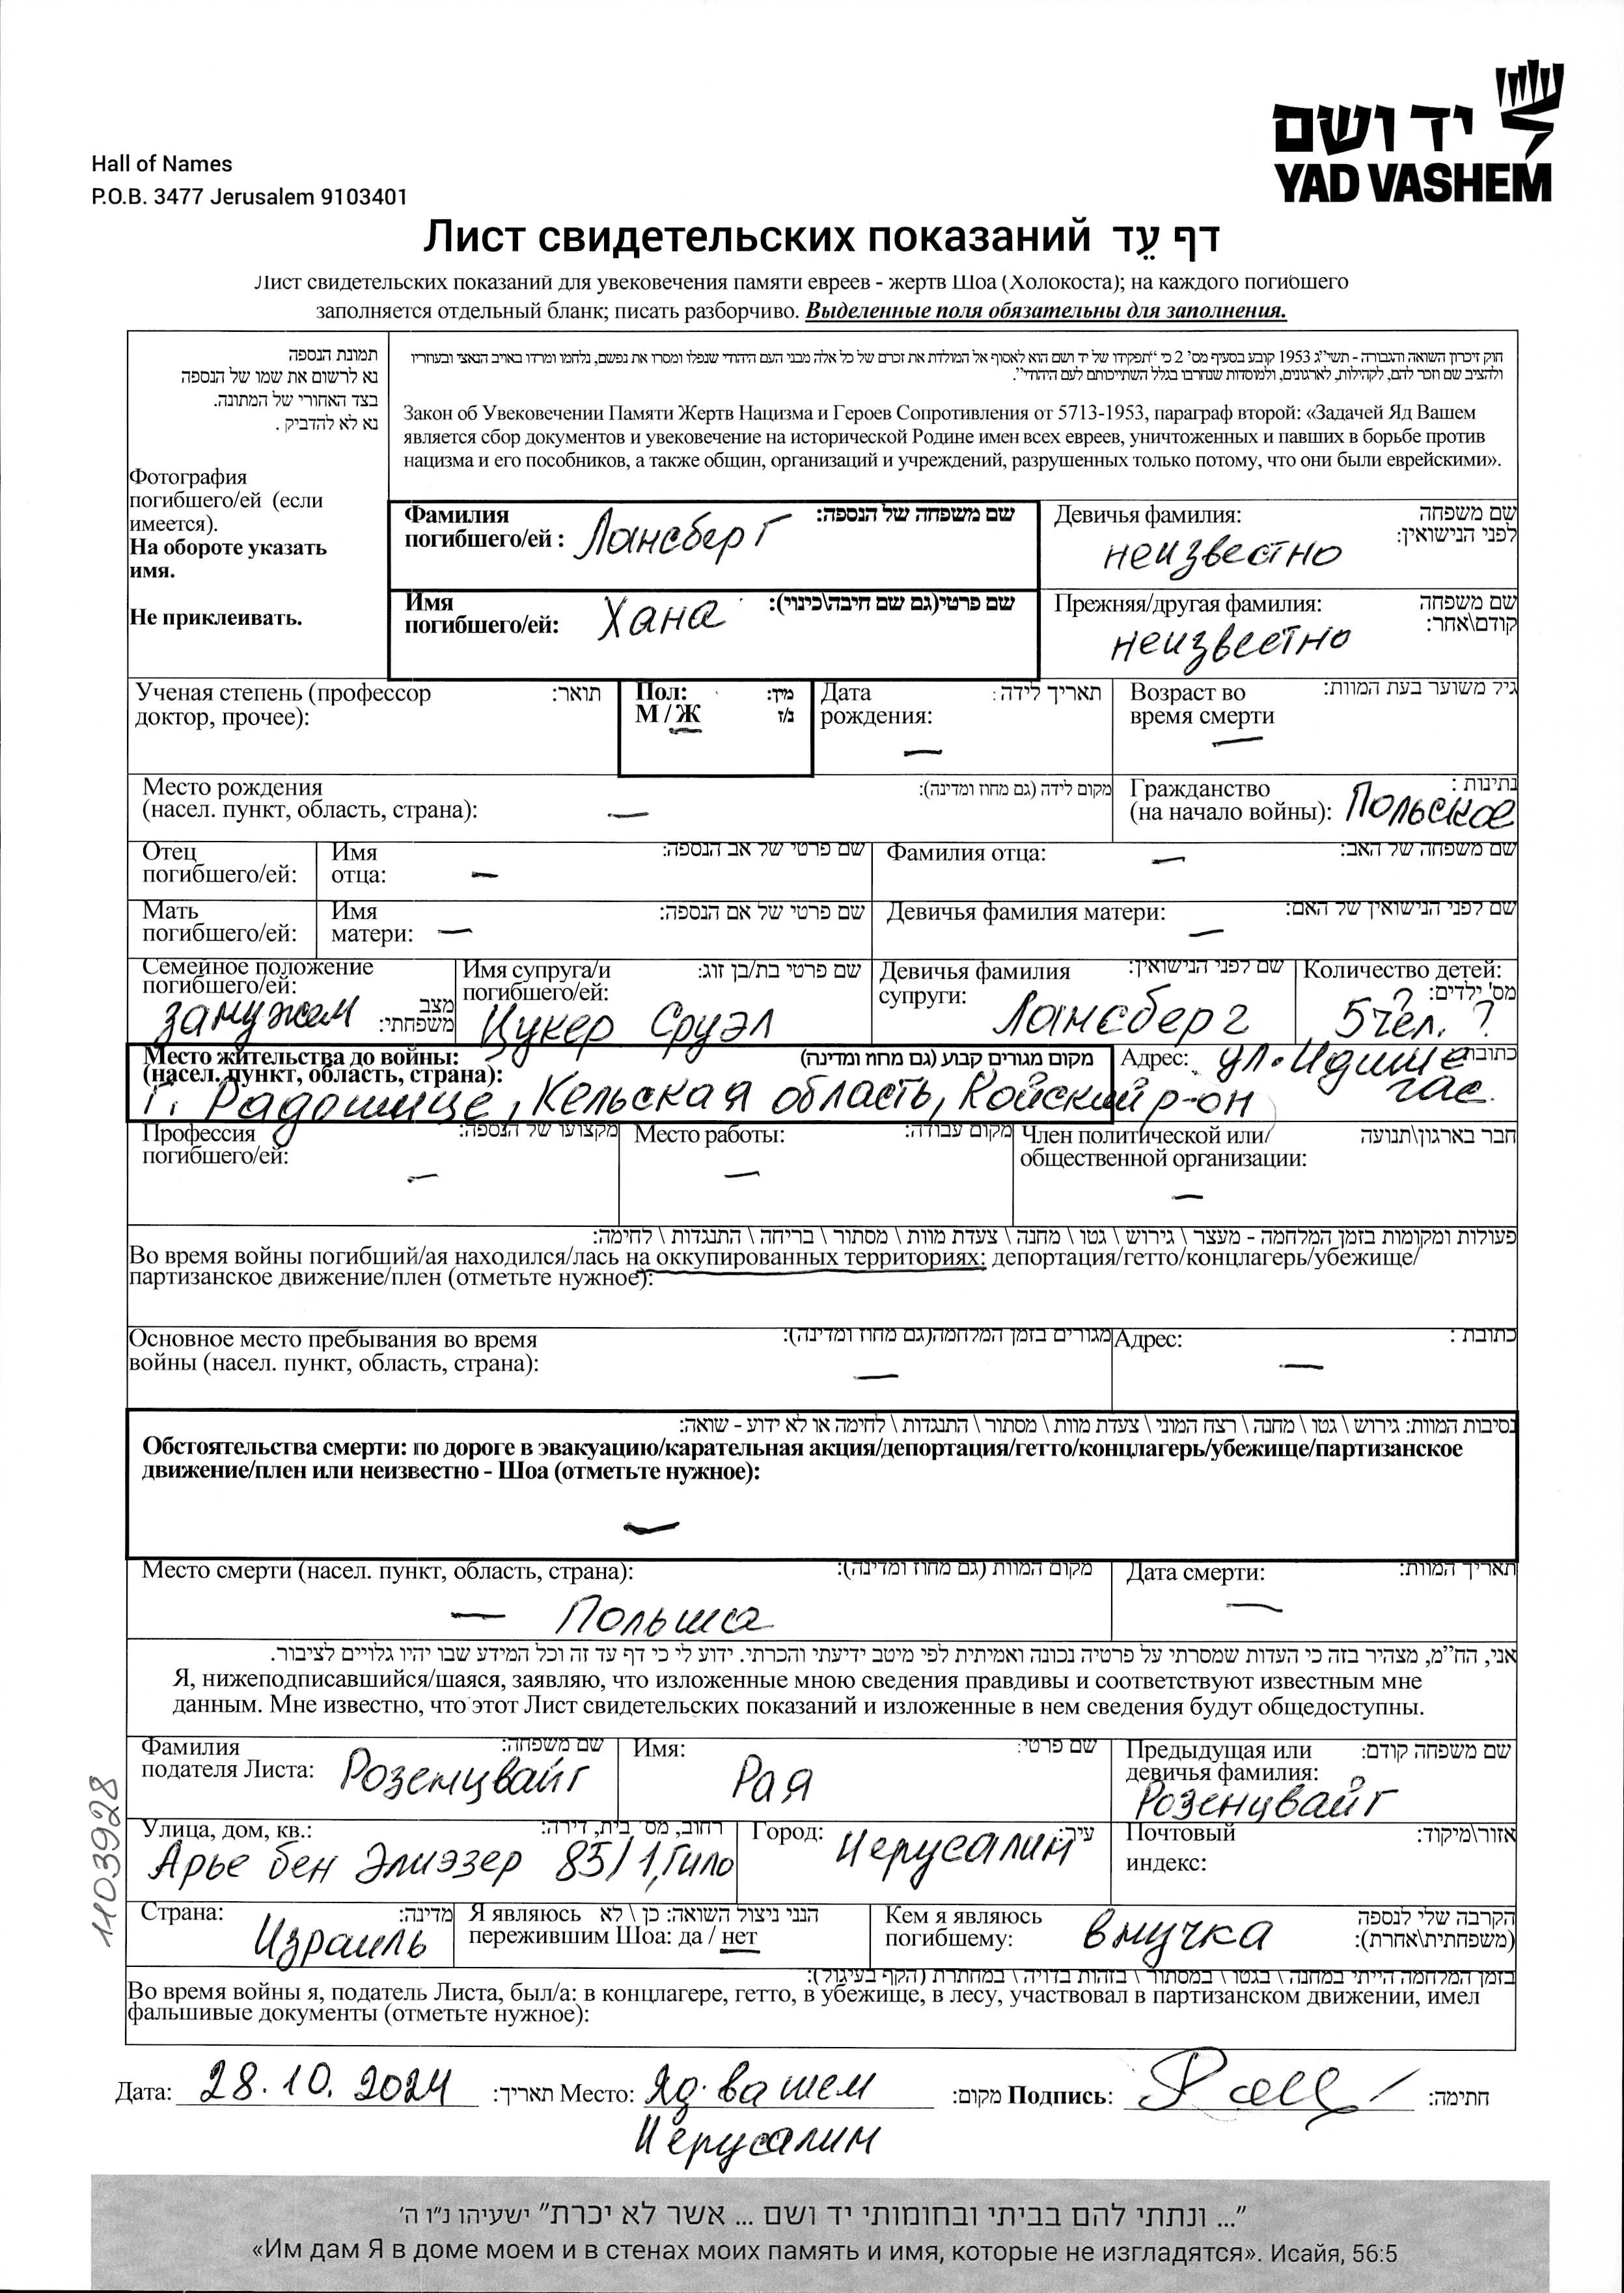 יד ושם
YAD VASHEM
Hall of Names
P.O.B. 3477 Jerusalem 9103401
Лист свидетельских показаний דף עֵד
Лист свидетельских показаний для увековечения памяти евреев - жертв Шоа (Холокоста); на каждого погибшего
заполняется отдельный бланк; писать разборчиво. Выделенные поля обязательны для заполнения.
תמונת הנספה
נא לרשום את שמו של הנספה
בצד האחורי של המתונה.
נא לא להדביק .
Фотография
погибшего/ей (если
имеется).
На обороте указать
имя.
Не приклеивать.
חוק זיכרון השואה והגבורה - תשי״ג 1953 קובע בסעיף מס' 2 כי “תפקידו של יד ושם הוא לאסוף אל המולדת את זכרם של כל אלה מבני העם היהודי שנפלו ומסרו את נפשם, נלחמו ומרדו באויב הנאצי ובעוזריו
ולהציב שם וזכר להם, לקהילות, לארגונים, ולמוסדות שנחרבו בגלל השתייכותם לעם היהודי”.
Закон об Увековечении Памяти Жертв Нацизма и Героев Сопротивления от 5713-1953, параграф второй: «Задачей Яд Вашем
является сбор документов и увековечение на исторической Родине имен всех евреев, уничтоженных и павших в борьбе против
нацизма и его пособников, а также общин, организаций и учреждений, разрушенных только потому, что они были еврейскими».
Фамилия погибшего/ей : Лансберг שם משפחה של הנספה:
Девичья фамилия: неизвестно שם משפחה לפני הנישואין:
Имя погибшего/ей: Хана שם פרטי(גם שם חיבה\כינוי):
Прежняя/другая фамилия: неизвестно שם משפחה קודם\אחר:
Ученая степень (профессор доктор, прочее): תואר:
Пол: М / Ж מין: נ/ז
Дата рождения: — תאריך לידה:
Возраст во время смерти — גיל משוער בעת המוות:
Место рождения (насел. пункт, область, страна): — מקום לידה (גם מחוז ומדינה):
Гражданство (на начало войны): Польское נתינות :
Отец погибшего/ей: Имя отца: — שם פרטי של אב הנספה:
Фамилия отца: — שם משפחה של האב:
Мать погибшего/ей: Имя матери: — שם פרטי של אם הנספה:
Девичья фамилия матери: — שם לפני הנישואין של האם:
Семейное положение погибшего/ей: замужем מצב משפחתי:
Имя супруга/и погибшего/ей: Цукер Сруэл שם פרטי בת/בן זוג:
Девичья фамилия супруги: Лансберг שם לפני הנישואין:
Количество детей: 5 чел. ? מס' ילדים:
Место жительства до войны: מקום מגורים קבוע (גם מחוז ומדינה)
(насел. пункт, область, страна):
г. Радошице, Кельская область, Койский р-он
Адрес: ул. Идише гас. כתובת
Профессия погибшего/ей: — מקצועו של הנספה:
Место работы: — מקום עבודה:
Член политической или/ общественной организации: — חבר בארגון\תנועה
פעולות ומקומות בזמן המלחמה - מעצר \ גירוש \ גטו \ מחנה \ צעדת מוות \ מסתור \ בריחה \ התנגדות \ לחימה:
Во время войны погибший/ая находился/лась на оккупированных территориях: депортация/гетто/концлагерь/убежище/
партизанское движение/плен (отметьте нужное):
Основное место пребывания во время войны (насел. пункт, область, страна): — מגורים בזמן המלחמה(גם מחוז ומדינה):
Адрес: — כתובת :
נסיבות המוות: גירוש \ גטו \ מחנה \ רצח המוני \ צעדת מוות \ מסתור \ התנגדות \ לחימה או לא ידוע - שואה:
Обстоятельства смерти: по дороге в эвакуацию/карательная акция/депортация/гетто/концлагерь/убежище/партизанское
движение/плен или неизвестно - Шоа (отметьте нужное):
—
Место смерти (насел. пункт, область, страна): מקום המוות (גם מחוז ומדינה):
— Польша
Дата смерти: — תאריך המוות:
אני, הח״מ, מצהיר בזה כי העדות שמסרתי על פרטיה נכונה ואמיתית לפי מיטב ידיעתי והכרתי. ידוע לי כי דף עד זה וכל המידע שבו יהיו גלויים לציבור.
Я, нижеподписавшийся/шаяся, заявляю, что изложенные мною сведения правдивы и соответствуют известным мне
данным. Мне известно, что этот Лист свидетельских показаний и изложенные в нем сведения будут общедоступны.
Фамилия подателя Листа: Розенцвайг שם משפחה:
Имя: Рая שם פרטי:
Предыдущая или девичья фамилия: Розенцвайг שם משפחה קודם:
Улица, дом, кв.: רחוב, מס' בית, דירה:
Арье бен Элиэзер 85/1, Гило
Город: Иерусалим עיר:
Почтовый индекс: אזור\מיקוד:
Страна: Израиль מדינה:
Я являюсь пережившим Шоа: да / нет הנני ניצול השואה: כן \ לא
Кем я являюсь погибшему: внучка הקרבה שלי לנספה (משפחתית\אחרת):
בזמן המלחמה הייתי במחנה \ בגטו \ במסתור \ בזהות בדויה \ במחתרת (הקף בעיגול):
Во время войны я, податель Листа, был/а: в концлагере, гетто, в убежище, в лесу, участвовал в партизанском движении, имел
фальшивые документы (отметьте нужное):
1103928
Дата: 28.10.2024 תאריך: Место: Яд-вашем מקום: Подпись: חתימה:
Иерусалим
”... ונתתי להם בביתי ובחומותי יד ושם ... אשר לא יכרת” ישעיהו נ״ו ה׳
«Им дам Я в доме моем и в стенах моих память и имя, которые не изгладятся». Исайя, 56:5